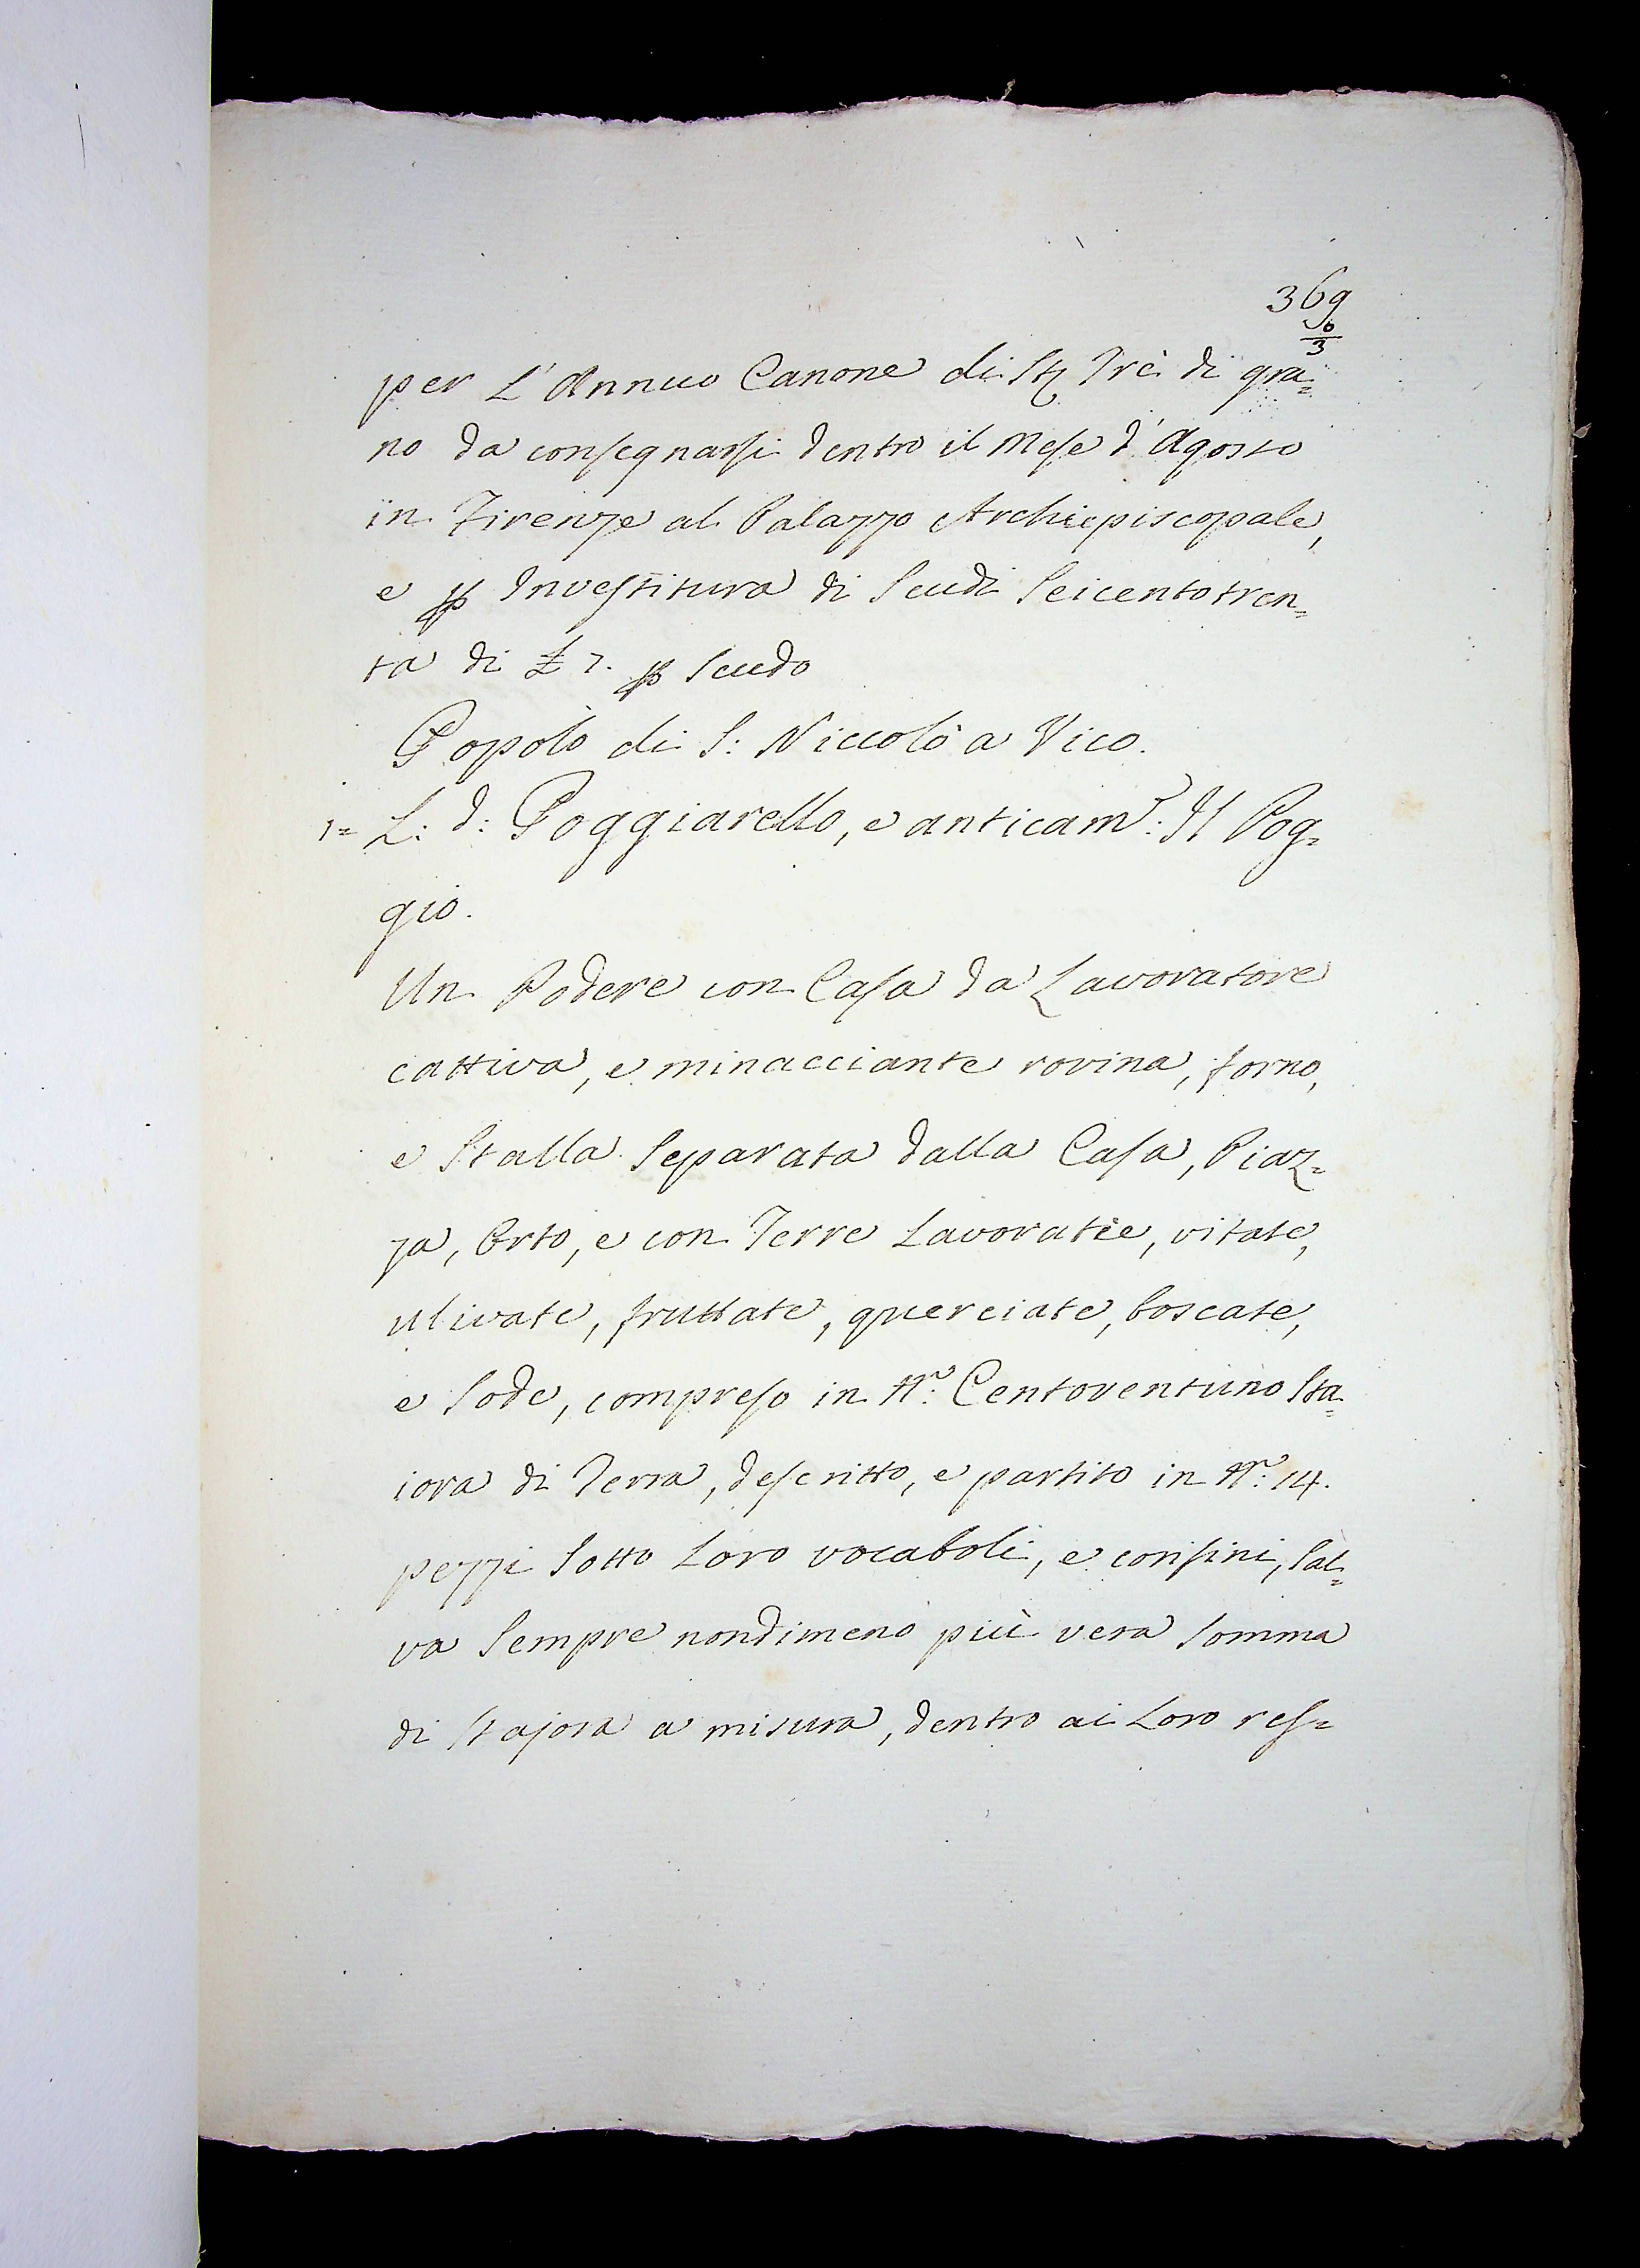 369
3
per L'Annuo Canone di Trè di gra=
no da consegnarsi dentro il Mese d'Agosto
in Firenze al Palazzo Archiepiscopale,
e Investitura di Scudi Seicentotren=
ta di £ 7. Scudo
Popolo di S: Niccolò a Vico.
1= L: d: Poggiarello, e anticam.e: Il Pog=
gio.
Un Podere con Casa da Lavoratore
cattiva, e minacciante rovina, forno,
e Stalla Separata dalla Casa, Piaz=
za, Orto, e con Terre Lavoratie, vitate,
ulivate, fruttate, querciate, boscate,
e Sode, compreso in N.o: Centoventuno Sta=
iora di Terra, descritto, e partito in N.o: 14.
pezzi Sotto Loro vocaboli, e confini, Sal=
va Sempre nondimeno più vera Somma
di Stajora a misura, dentro ai Loro res=